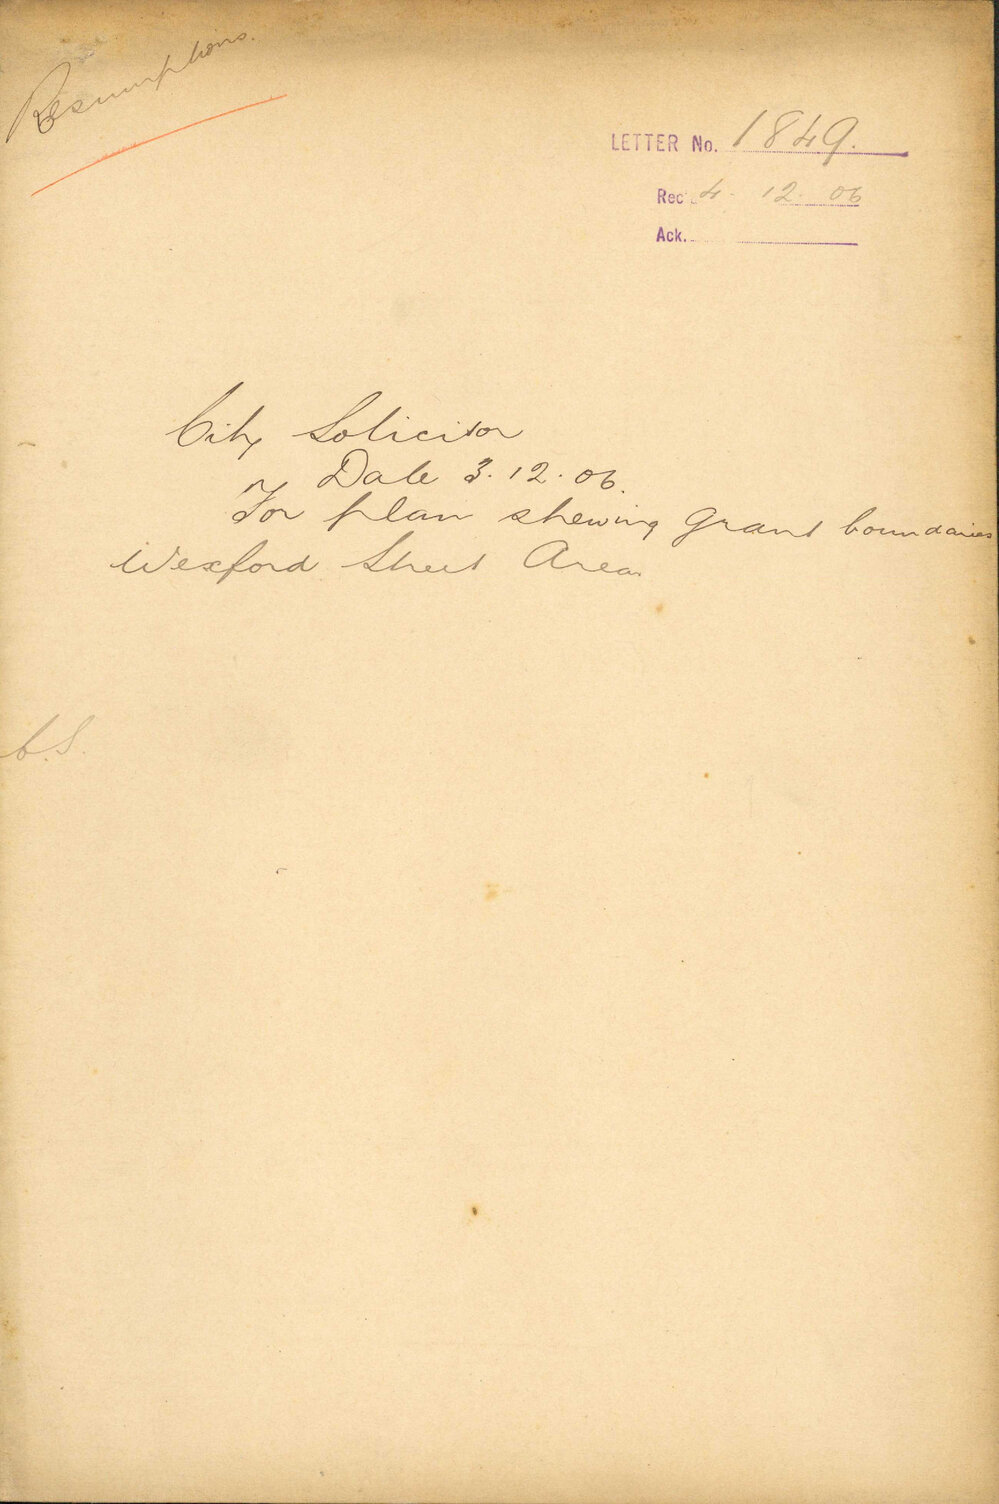 Resumptions.
LETTER No. 1849.
Rec 4. 12. 06
Ack.
City Solicitor
Date 3.12.06.
For plan shewing grant boundaries
Wexford Street Area
C.S.